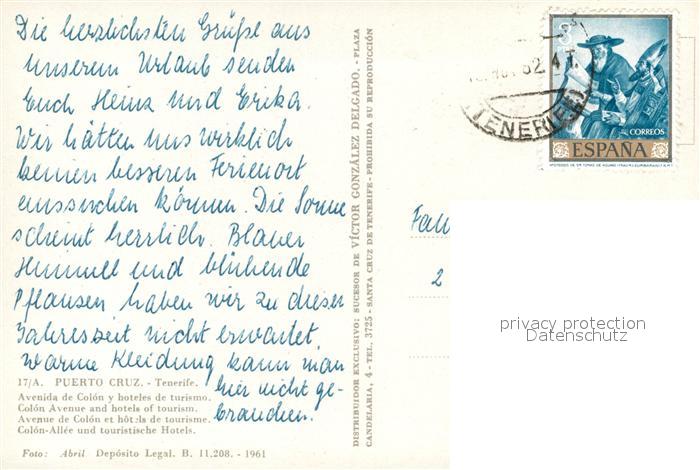 Die herzlichsten Grüße aus
unserem Urlaub senden
Euch Heinz und Erika.
Wir hätten uns wirklich
keinen besseren Ferienort
aussuchen können. Die Sonne
scheint herrlich. Blauer
Himmel und blühende
Pflanzen haben wir zu dieser
Jahreszeit nicht erwartet.
Warme Kleidung kann man
hier nicht ge-
brauchen.
17/A. PUERTO CRUZ. - Tenerife.
Avenida de Colón y hoteles de turismo.
Colón Avenue and hotels of tourism.
Avenue de Colón et hôtels de tourisme.
Colón-Allée und touristische Hotels.
Foto: Abril Depósito Legal. B. 11.208. - 1961
DISTRIBUIDOR EXCLUSIVO: SUCESOR DE VÍCTOR GONZÁLEZ DELGADO. - PLAZA
CANDELARIA, 4 - TEL. 3725 - SANTA CRUZ DE TENERIFE - PROHIBIDA SU REPRODUCCIÓN
62
TENERIFE
CORREOS
ESPAÑA
Fam
2
privacy protection
Datenschutz